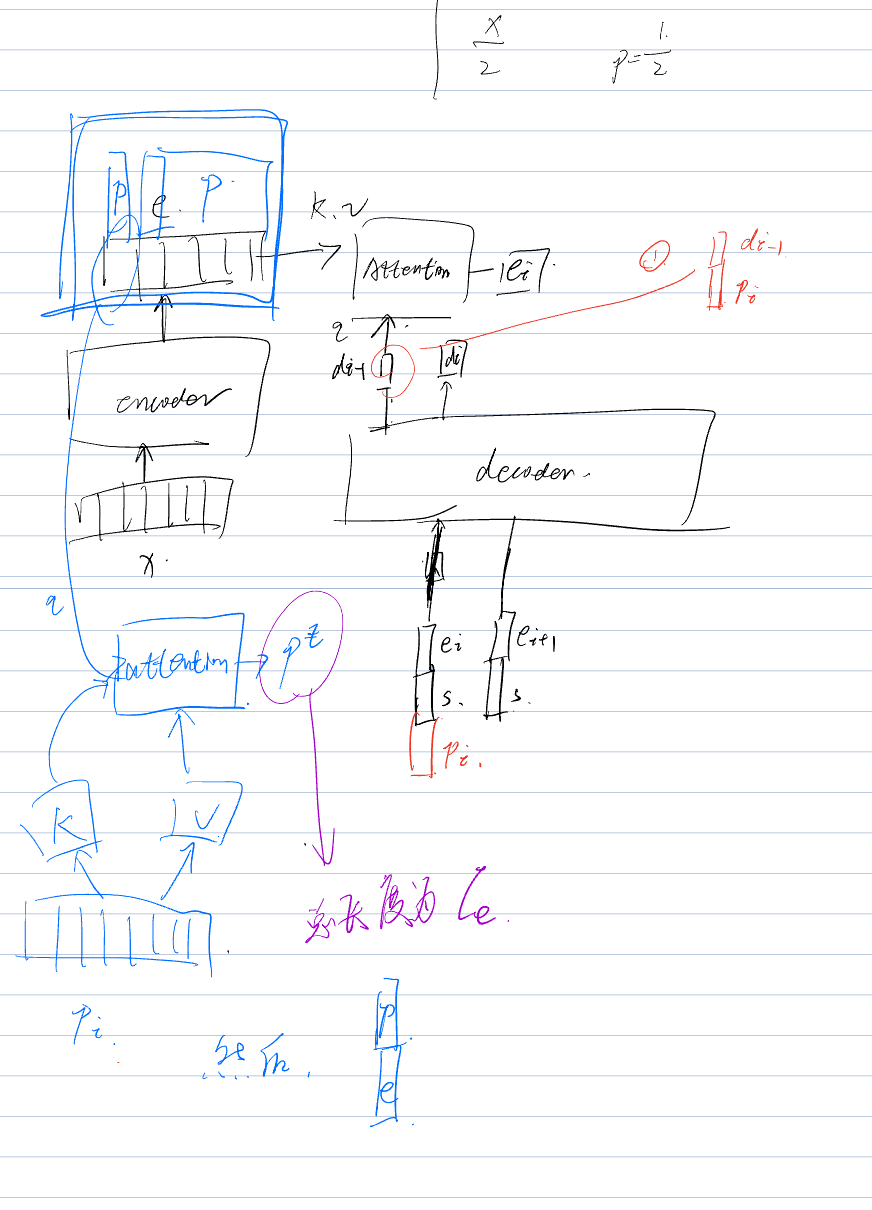 x/2 p=1/2
p e. p.
k.v
Attention
ei
① di-1
pi
q
di-1
di
encoder
decoder.
x.
q
attention
pt
ei
ei+1
s.
s.
pi.
K
V
总长度为 le.
pi
然后.
p
e